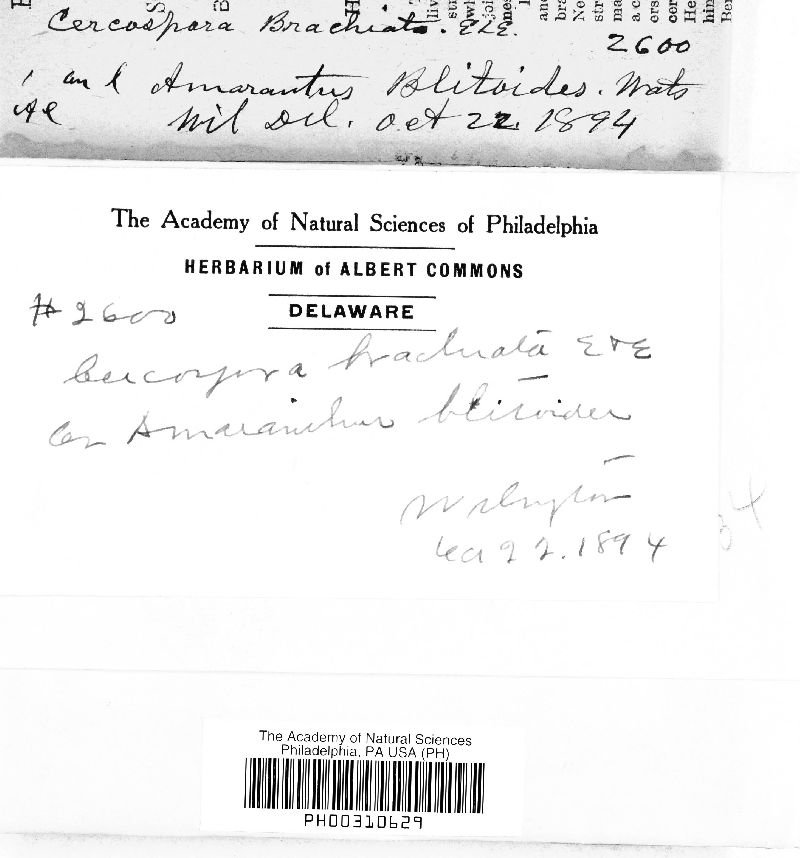 Cercospora Brachiata. E&E.
2600
on l Amarantus Blitoides. Wats
Wil Del. Oct 22 1894
The Academy of Natural Sciences of Philadelphia
HERBARIUM of ALBERT COMMONS
DELAWARE
#2600
Cercospora brachiata E&E
on Amaranthus blitoides
Wilmington
Oct 22. 1894
The Academy of Natural Sciences
Philadelphia, PA USA (PH)
PH00310629